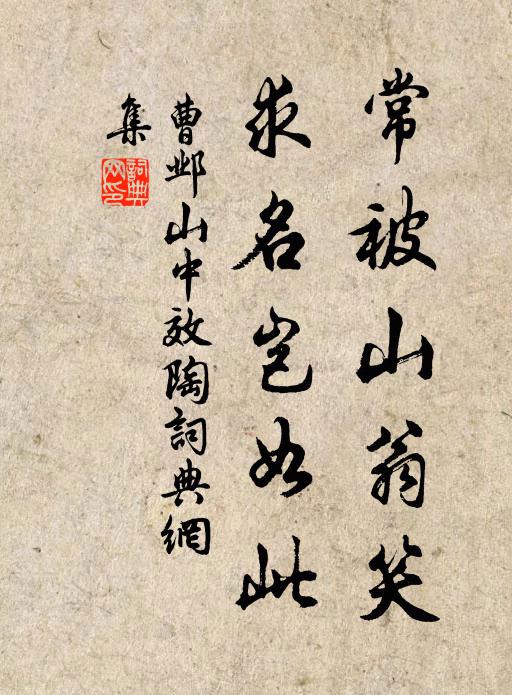 常被山翁笑
求名岂如此
曹邺山中效陶詞典網
集
詞典
网印